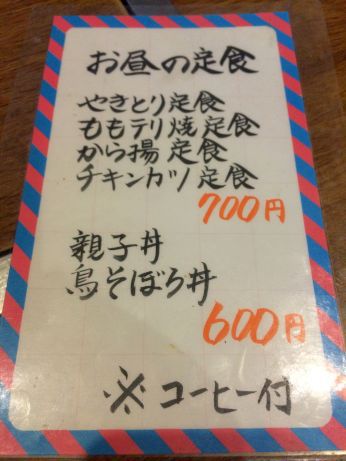 お昼の定食
やきとり定食
ももテリ焼定食
から揚定食
チキンカツ定食
700円
親子丼
鳥そぼろ丼
600円
※コーヒー付